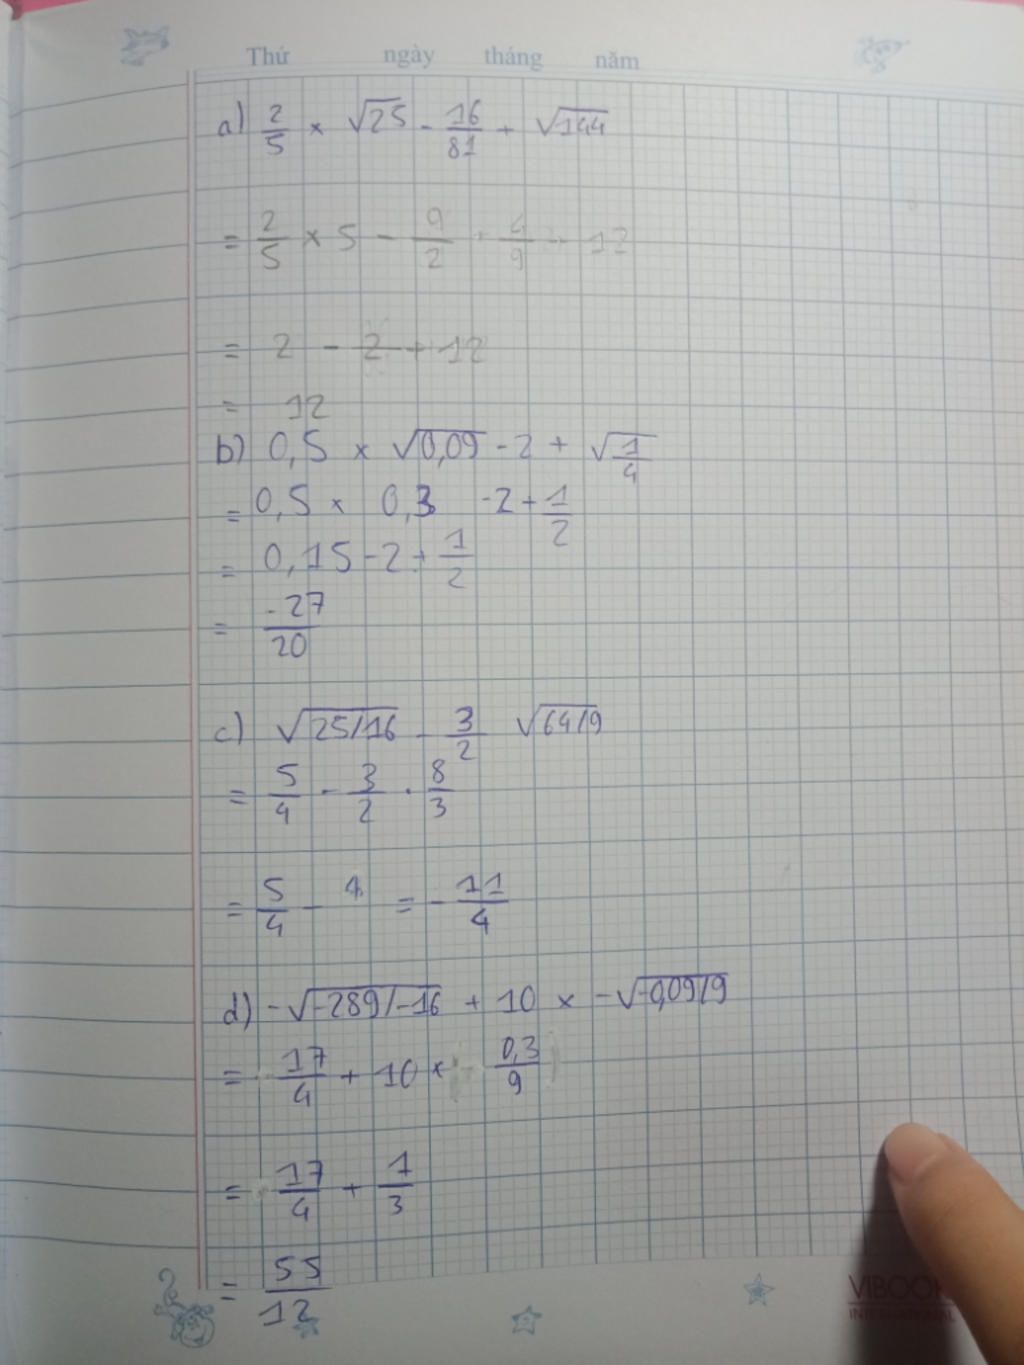 Thứ ngày tháng năm
a) 2/5 × √25 - 16/81 + √144
= 2/5 × 5 - 9/2 · 4/9 + 12
= 2 - 2 + 12
= 12
b) 0,5 × √0,09 - 2 + √1/4
= 0,5 × 0,3 - 2 + 1/2
= 0,15 - 2 + 1/2
= -27/20
c) √25/16 - 3/2 √64/9
= 5/4 - 3/2 · 8/3
= 5/4 - 4 = - 11/4
d) -√-289/-16 + 10 × -√-0,09/9
= 17/4 + 10 × 0,3/9
= 17/4 + 1/3
= 55/12
VIBOOK
INTERNATIONAL